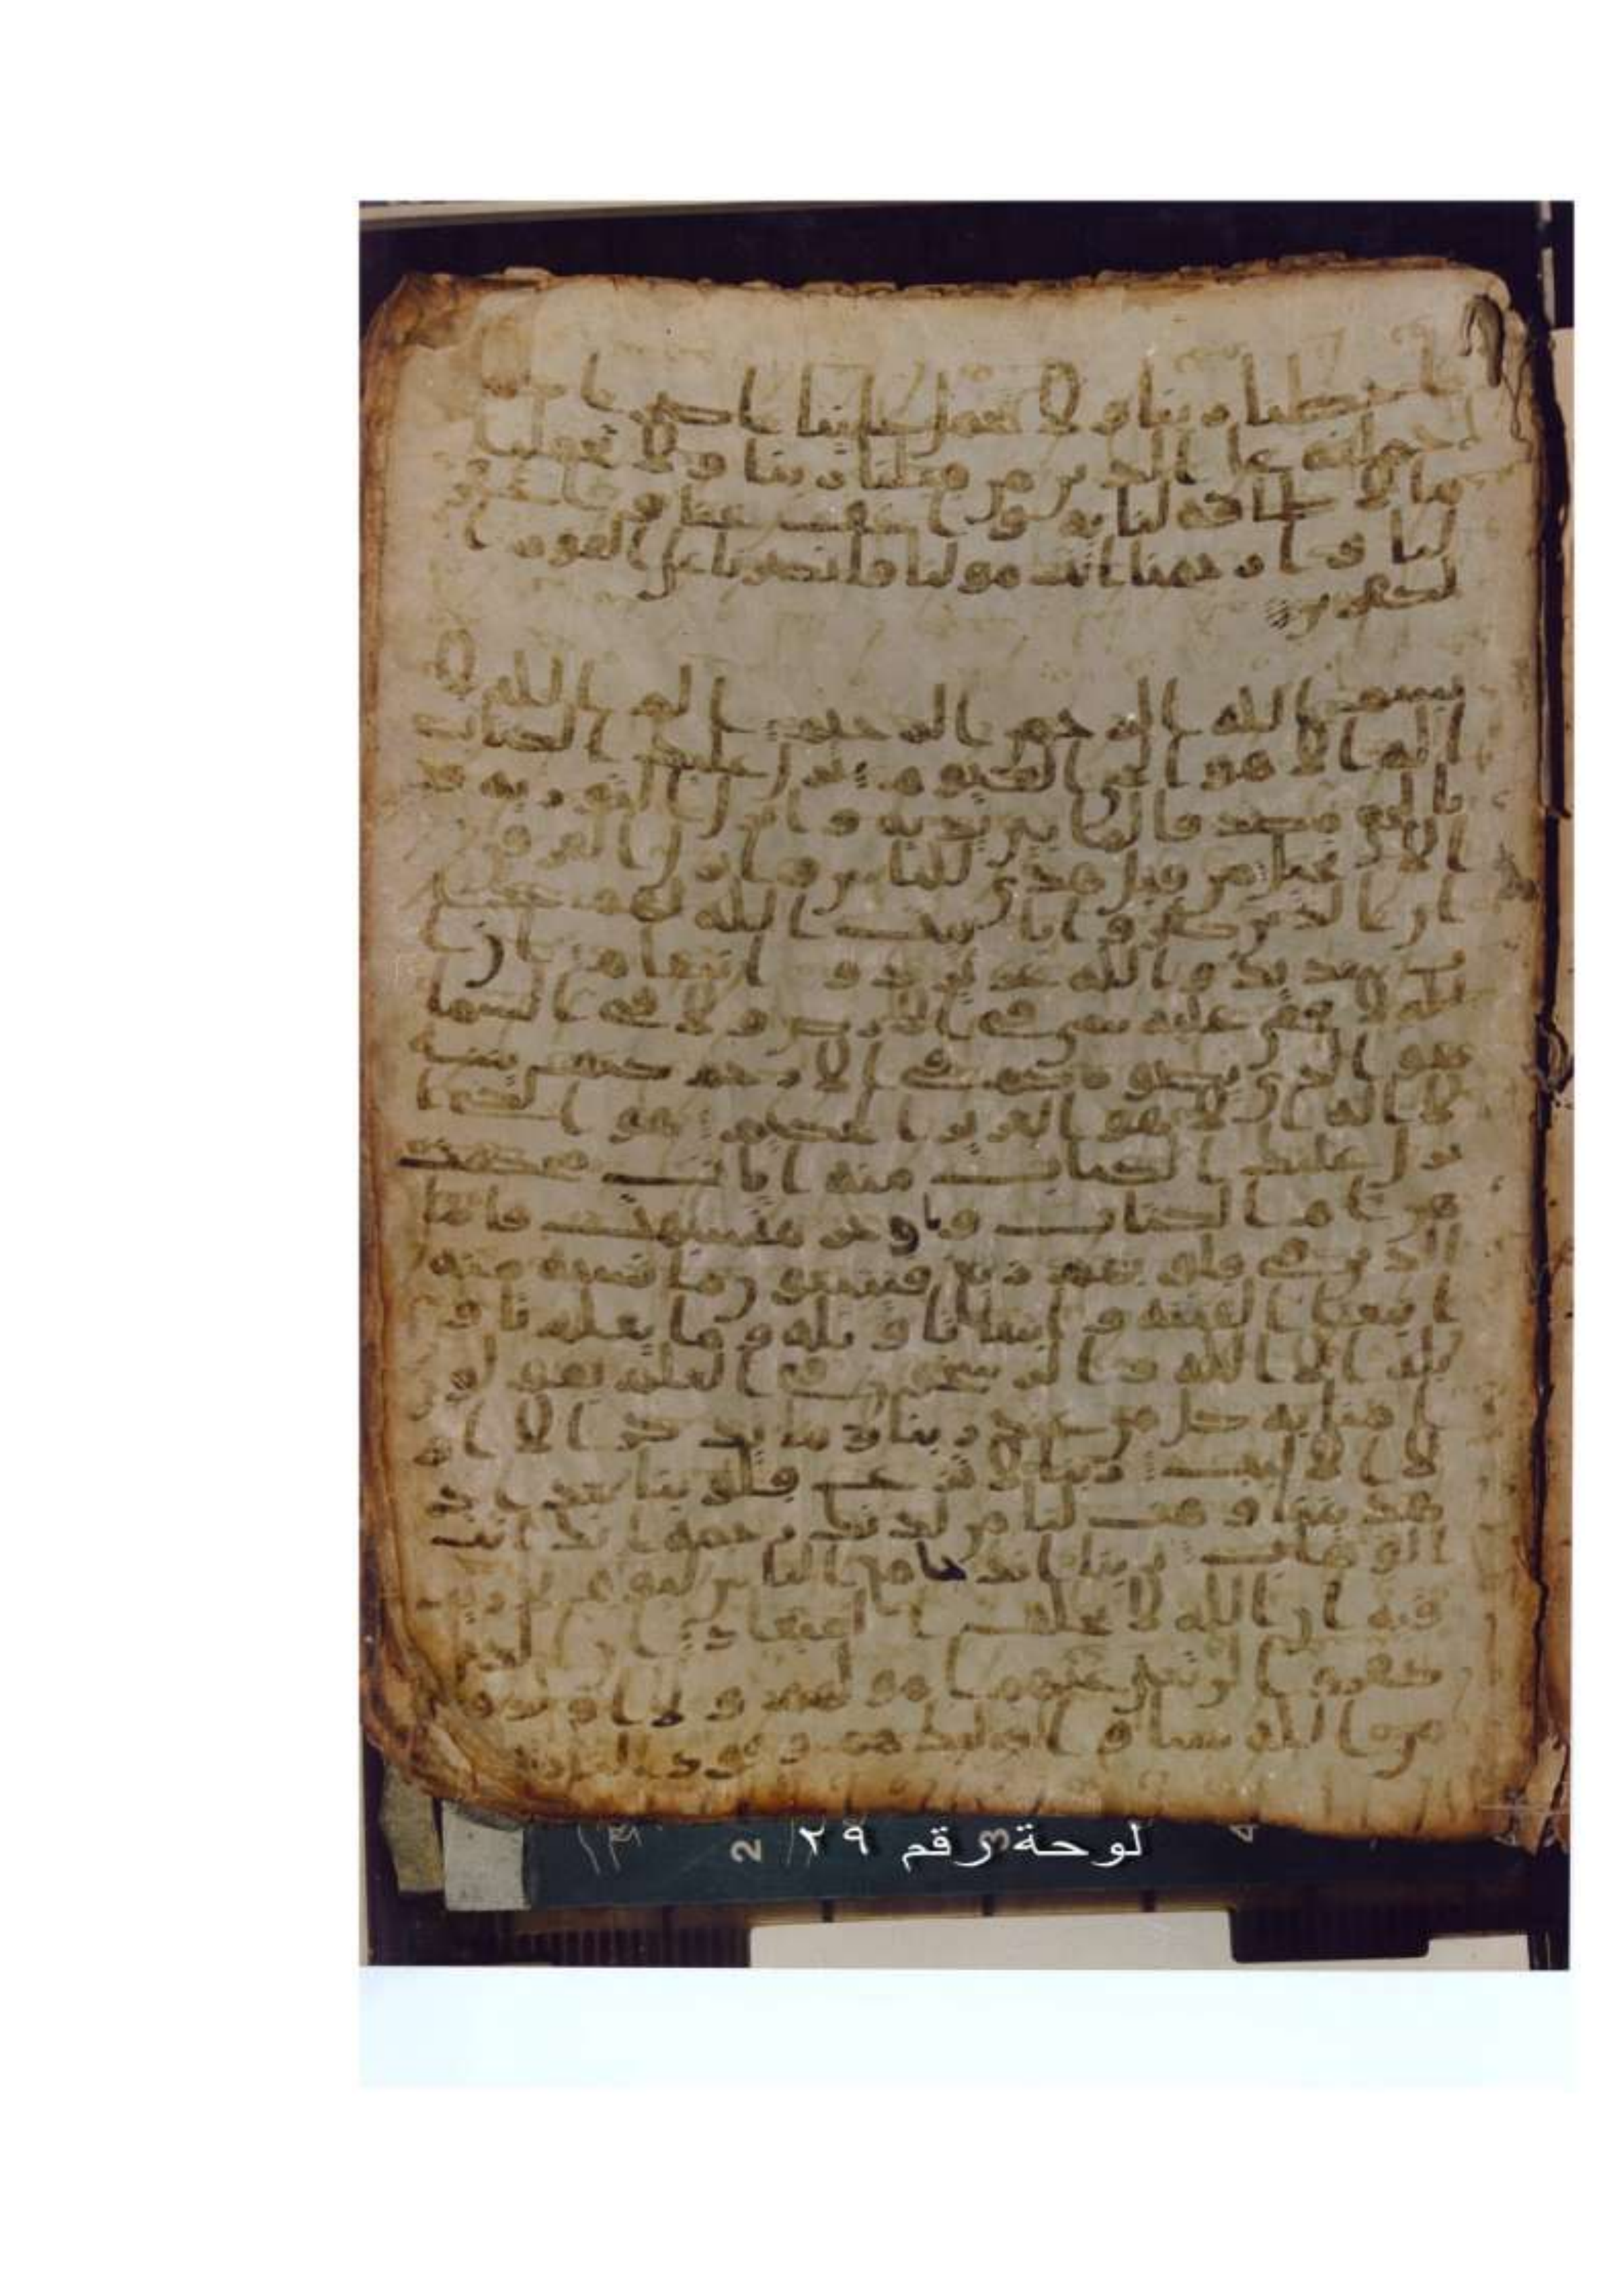 ا خطانا ربنا و لا تحمل علينا ا صر ا كما
حملته على ا لذين من قبلنا ربنا و لا تحملنا
ما لا طاقه لنا به و ا عف عنا و ا غفر
لنا و ا ر حمنا ا نت مو لنا فا نصر نا على ا لقوم ا
لكفرين
بسم ا لله ا لر حمن ا لر حيم ا لم ا لله لا
ا له ا لا هو ا لحى ا لقيو م نز ل عليك ا لكتاب
با لحق مصد قا لما بين يد يه و ا نز ل ا لتو ر يه و
ا لا نجيل من قبل هدى للنا س و ا نز ل ا لفر قن
ا ن ا لذين كفر و ا با يت ا لله لهم عذ ا ب
شد يد و ا لله عز يز ذ و ا نتقا م ا ن ا
لله لا يخفى عليه شى فى ا لا ر ض و لا فى ا لسما
هو ا لذى يصو ر كم فى ا لا ر حم كيف يشا
لا ا له ا لا هو ا لعز يز ا لحكيم هو ا لذى ا
نز ل عليك ا لكتاب منه ا يا ت محكمت
هن ا م ا لكتاب و ا خر متشبهت فا ما
ا لذ ين فى قلو بهم ز يغ فيتبعو ن ما تشبه منه
ا بتغا ا لفتنه و ا بتغا تا و يله و ما يعلم تا و
يله ا لا ا لله و ا لر سخو ن فى ا لعلم يقو لو ن
ا منا به كل من عند ر بنا و ما يذ كر ا لا ا و
لو ا ا لا لبب ر بنا لا تز غ قلو بنا بعد ا ذ
هد يتنا و هب لنا من لد نك ر حمه ا نك ا نت
ا لو هاب ر بنا ا نك جا مع ا لنا س ليو م لا ر يب
فيه ا ن ا لله لا يخلف ا لميعا د ا ن ا لذين
كفر و ا لن تغنى عنهم ا مو لهم و لا ا و لد هم
من ا لله شيا و ا و ليك هم و قو د ا لنا ر
لوحة رقم ٢٩
2
3